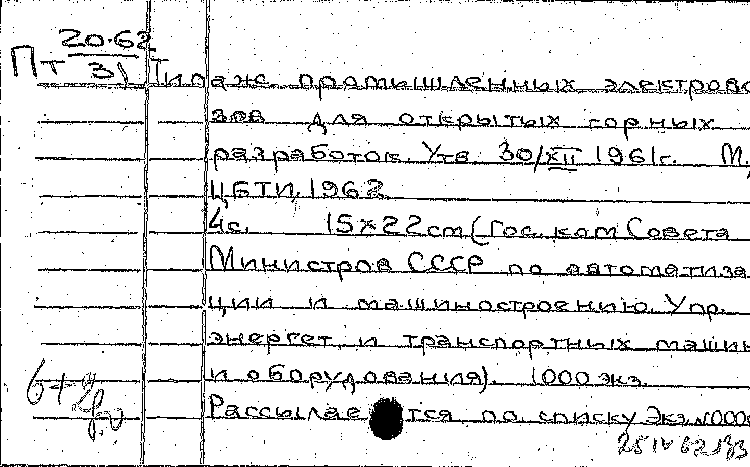 20.62
Пт 31
Типаж промышленных электрово
зов для открытых горных
разработок. Утв. 30/XII 1961г. М.,
ЦБТИ, 1962
4с. 15×22см (Гос. ком Совета
Министров СССР по автоматиза
ции и машиностроению. Упр.
энергет. и транспортных машин
и оборудования). 1000 экз.
Рассылается по списку Экз. N000
25 IV 62